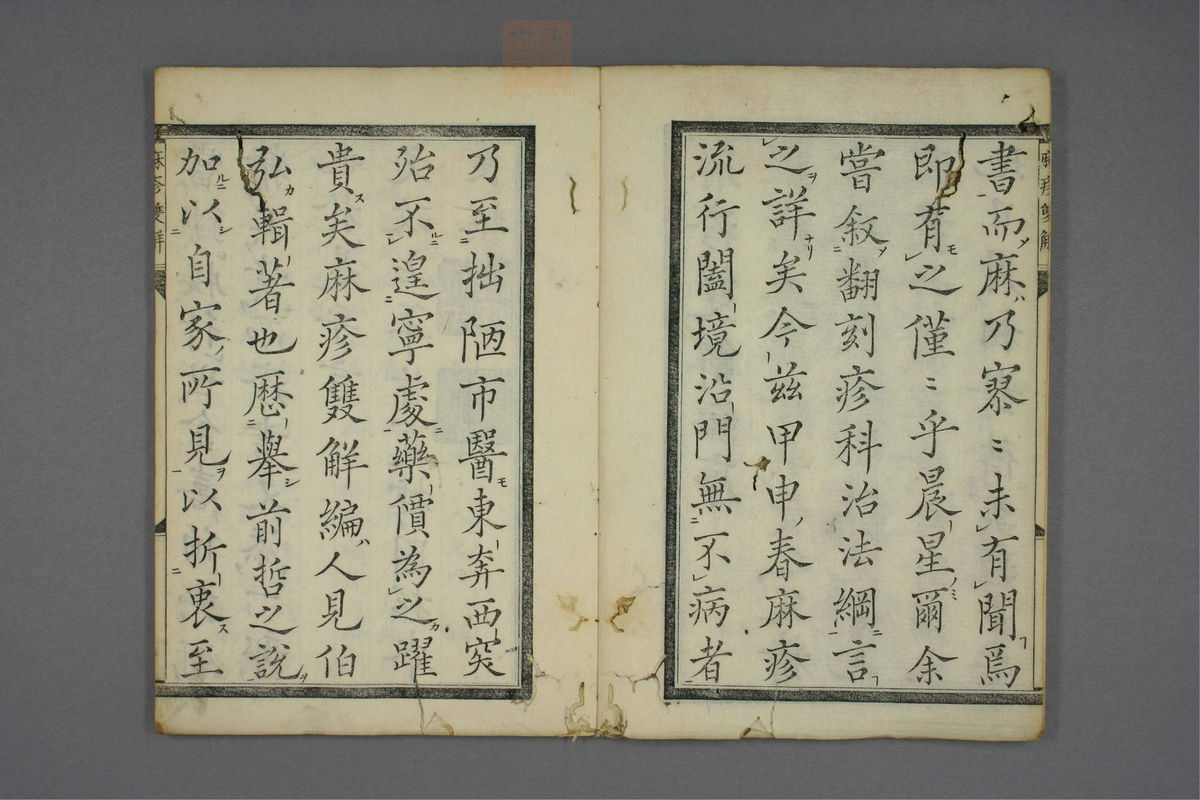 書而麻乃寥〻未有聞焉
即有之僅〻乎晨星爾余
嘗叙翻刻疹科治法綱言
之詳矣今茲甲申春麻疹
流行闔境沿門無不病者
乃至拙陋市醫東奔西突
殆不遑寧處藥價為之躍
貴矣麻疹雙解編人見伯
弘輯著也歴舉前哲之說
加以自家所見以折衷至